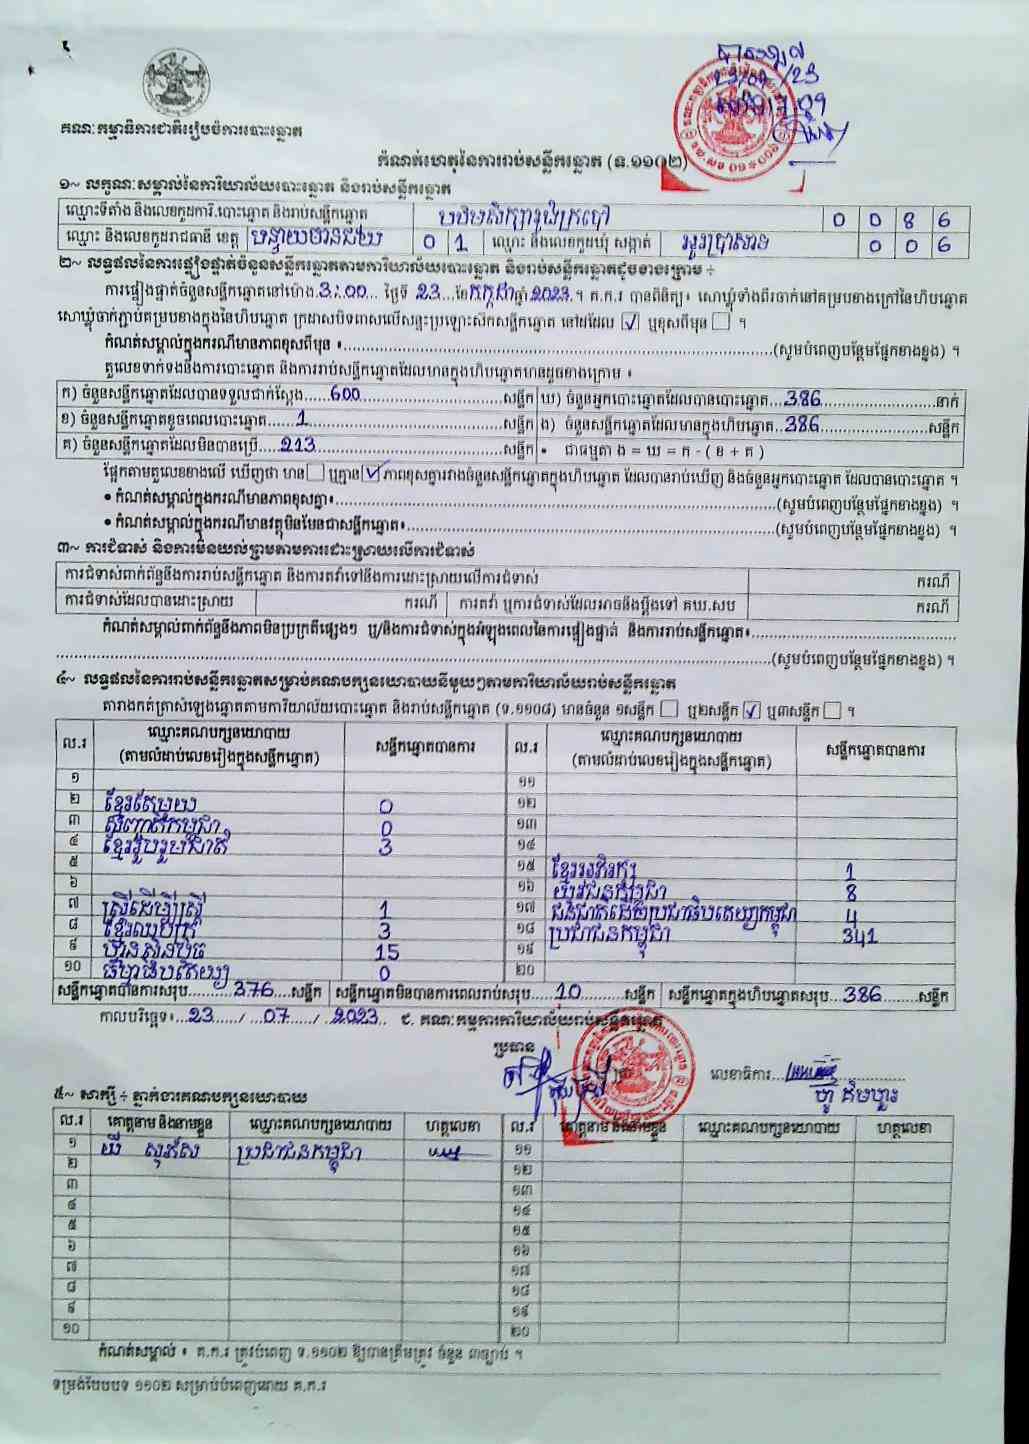 គណៈកម្មាធិការជាតិរៀបចំការបោះឆ្នោត
កំណត់ហេតុនៃការរាប់សន្លឹកឆ្នោត (ធ.១១០២)
១~ លក្ខណៈសម្គាល់នៃការិយាល័យបោះឆ្នោត និងរាប់សន្លឹកឆ្នោត
ឈ្មោះទីតាំង និងលេខកូដការិ.បោះឆ្នោត និងរាប់សន្លឹកឆ្នោត 0 0 8 6
ឈ្មោះ និងលេខកូដរាជធានី ខេត្ត បន្ទាយមានជ័យ 0 1 ឈ្មោះ និងលេខកូដឃុំ សង្កាត់ អូរប្រាសាទ 0 0 6
២~ លទ្ធផលនៃការផ្ទៀងផ្ទាត់ចំនួនសន្លឹកឆ្នោតតាមការិយាល័យបោះឆ្នោត និងរាប់សន្លឹកឆ្នោតដូចខាងក្រោម ÷
ការផ្ទៀងផ្ទាត់ចំនួនសន្លឹកឆ្នោតនៅម៉ោង 3:00 ថ្ងៃទី 23 ខែ កក្កដា ឆ្នាំ 2023 ។ គ.ក.រ បានពិនិត្យ៖ សោឃ្លុំទាំងពីរចាក់នៅគម្របខាងក្រៅនៃហិបឆ្នោត
សោឃ្លុំចាក់ភ្ជាប់គម្របខាងក្នុងនៃហិបឆ្នោត ក្រដាសបិទពាសលើសន្ទះប្រឡោះស៊កសន្លឹកឆ្នោត នៅដដែល ☑ ឬខុសពីមុន ☐ ។
កំណត់សម្គាល់ក្នុងករណីមានភាពខុសពីមុន ៖ (សូមបំពេញបន្ថែមផ្នែកខាងខ្នង) ។
តួលេខទាក់ទងនឹងការបោះឆ្នោត និងការរាប់សន្លឹកឆ្នោតដែលមានក្នុងហិបឆ្នោតមានដូចខាងក្រោម ៖
ក) ចំនួនសន្លឹកឆ្នោតដែលបានទទួលជាក់ស្តែង 600 សន្លឹក ឃ) ចំនួនអ្នកបោះឆ្នោតដែលបានបោះឆ្នោត 386 នាក់
ខ) ចំនួនសន្លឹកឆ្នោតខូចពេលបោះឆ្នោត 1 សន្លឹក ង) ចំនួនសន្លឹកឆ្នោតដែលមានក្នុងហិបឆ្នោត 386 សន្លឹក
គ) ចំនួនសន្លឹកឆ្នោតដែលមិនបានប្រើ 213 សន្លឹក • ជាធម្មតា ង = ឃ = ក - ( ខ + គ )
ផ្អែកតាមតួលេខខាងលើ ឃើញថា មាន ☐ ឬគ្មាន ☑ ភាពខុសគ្នារវាងចំនួនសន្លឹកឆ្នោតក្នុងហិបឆ្នោត ដែលបានរាប់ឃើញ និងចំនួនអ្នកបោះឆ្នោត ដែលបានបោះឆ្នោត ។
• កំណត់សម្គាល់ក្នុងករណីមានភាពខុសគ្នា៖ (សូមបំពេញបន្ថែមផ្នែកខាងខ្នង) ។
• កំណត់សម្គាល់ក្នុងករណីមានវត្ថុមិនមែនជាសន្លឹកឆ្នោត៖ (សូមបំពេញបន្ថែមផ្នែកខាងខ្នង) ។
៣~ ការជំទាស់ និងការមិនយល់ព្រមតាមការដោះស្រាយលើការជំទាស់
ការជំទាស់ពាក់ព័ន្ធនឹងការរាប់សន្លឹកឆ្នោត និងការតវ៉ាទៅនឹងការដោះស្រាយលើការជំទាស់ ករណី
ការជំទាស់ដែលបានដោះស្រាយ ករណី ការតវ៉ា ឬការជំទាស់ដែលអាចនឹងប្តឹងទៅ គឃ.សប ករណី
កំណត់សម្គាល់ពាក់ព័ន្ធនឹងភាពមិនប្រក្រតីផ្សេងៗ ឬ/និងការជំទាស់ក្នុងអំឡុងពេលនៃការផ្ទៀងផ្ទាត់ និងការរាប់សន្លឹកឆ្នោត៖
(សូមបំពេញបន្ថែមផ្នែកខាងខ្នង) ។
៤~ លទ្ធផលនៃការរាប់សន្លឹកឆ្នោតសម្រាប់គណបក្សនយោបាយនីមួយៗតាមការិយាល័យរាប់សន្លឹកឆ្នោត
តារាងកត់ត្រាសំឡេងឆ្នោតតាមការិយាល័យបោះឆ្នោត និងរាប់សន្លឹកឆ្នោត (ទ.១១០៨) មានចំនួន ១សន្លឹក ☐ ឬ២សន្លឹក ☑ ឬ៣សន្លឹក ☐ ។
ល.រ ឈ្មោះគណបក្សនយោបាយ (តាមលំដាប់លេខរៀងក្នុងសន្លឹកឆ្នោត) សន្លឹកឆ្នោតបានការ ល.រ ឈ្មោះគណបក្សនយោបាយ (តាមលំដាប់លេខរៀងក្នុងសន្លឹកឆ្នោត) សន្លឹកឆ្នោតបានការ
១ ១១
២ ខ្មែរតែមួយ 0 ១២
៣ សញ្ជាតិកម្ពុជា 0 ១៣
៤ ខ្មែររួបរួមជាតិ 3 ១៤
៥ ១៥ ខ្មែរអភិរក្ស 1
៦ ១៦ យុវជនកម្ពុជា 8
៧ ស្ត្រីដើម្បីស្ត្រី 1 ១៧ ជនជាតិដើមប្រជាធិបតេយ្យកម្ពុជា 4
៨ ខ្មែរឈប់ក្រ 3 ១៨ ប្រជាជនកម្ពុជា 341
៩ ហ៊្វុនស៊ិនប៉ិច 15 ១៩
១០ ធម្មាធិបតេយ្យ 0 ២០
សន្លឹកឆ្នោតបានការសរុប 376 សន្លឹក សន្លឹកឆ្នោតមិនបានការពេលរាប់សរុប 10 សន្លឹក សន្លឹកឆ្នោតក្នុងហិបឆ្នោតសរុប 386 សន្លឹក
កាលបរិច្ឆេទ៖ 23 / 07 / 2023 ជ. គណៈកម្មការការិយាល័យរាប់សន្លឹកឆ្នោត
ប្រធាន
លេខាធិការ
៥~ សាក្សី ÷ ភ្នាក់ងារគណបក្សនយោបាយ
ល.រ គោត្តនាម និងនាមខ្លួន ឈ្មោះគណបក្សនយោបាយ ហត្ថលេខា ល.រ គោត្តនាម និងនាមខ្លួន ឈ្មោះគណបក្សនយោបាយ ហត្ថលេខា
១ ប្រជាជនកម្ពុជា ១១
២ ១២
៣ ១៣
៤ ១៤
៥ ១៥
៦ ១៦
៧ ១៧
៨ ១៨
៩ ១៩
១០ ២០
កំណត់សម្គាល់ ៖ គ.ក.រ ត្រូវបំពេញ ទ.១១០២ ឱ្យបានត្រឹមត្រូវ ចំនួន ៣ច្បាប់ ។
ទម្រង់បែបបទ ១១០២ សម្រាប់បំពេញដោយ គ.ក.រ